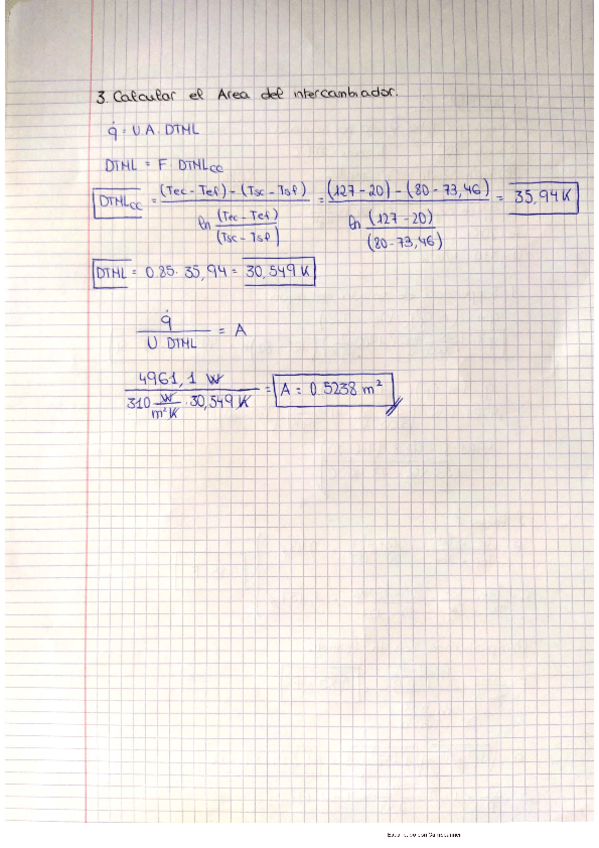 3. Calcular el Area del intercambiador.
q̇ = U.A. DTML
DTML = F DTMLcc
DTMLcc = (Tec - Tef) - (Tsc - Tsf) / ln (Tec - Tef) / (Tsc - Tsf) = (127 - 20) - (80 - 73,46) / ln (127 - 20) / (80 - 73,46) = 35,94 K
DTML = 0.85 · 35,94 = 30,549 K
q̇ / U DTML = A
4961,1 W / 310 W/m²K · 30,549 K = A = 0.5238 m²